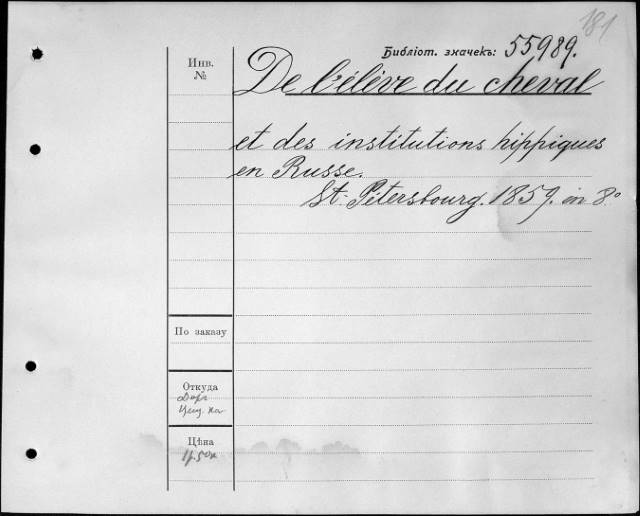 181
Библіот. значекъ: 55989.
Инв.
№
De l'élève du cheval
et des institutions hippiques
en Russe.
St. Pétersbourg. 1859. in 8°
По заказу
Откуда
Цѣна